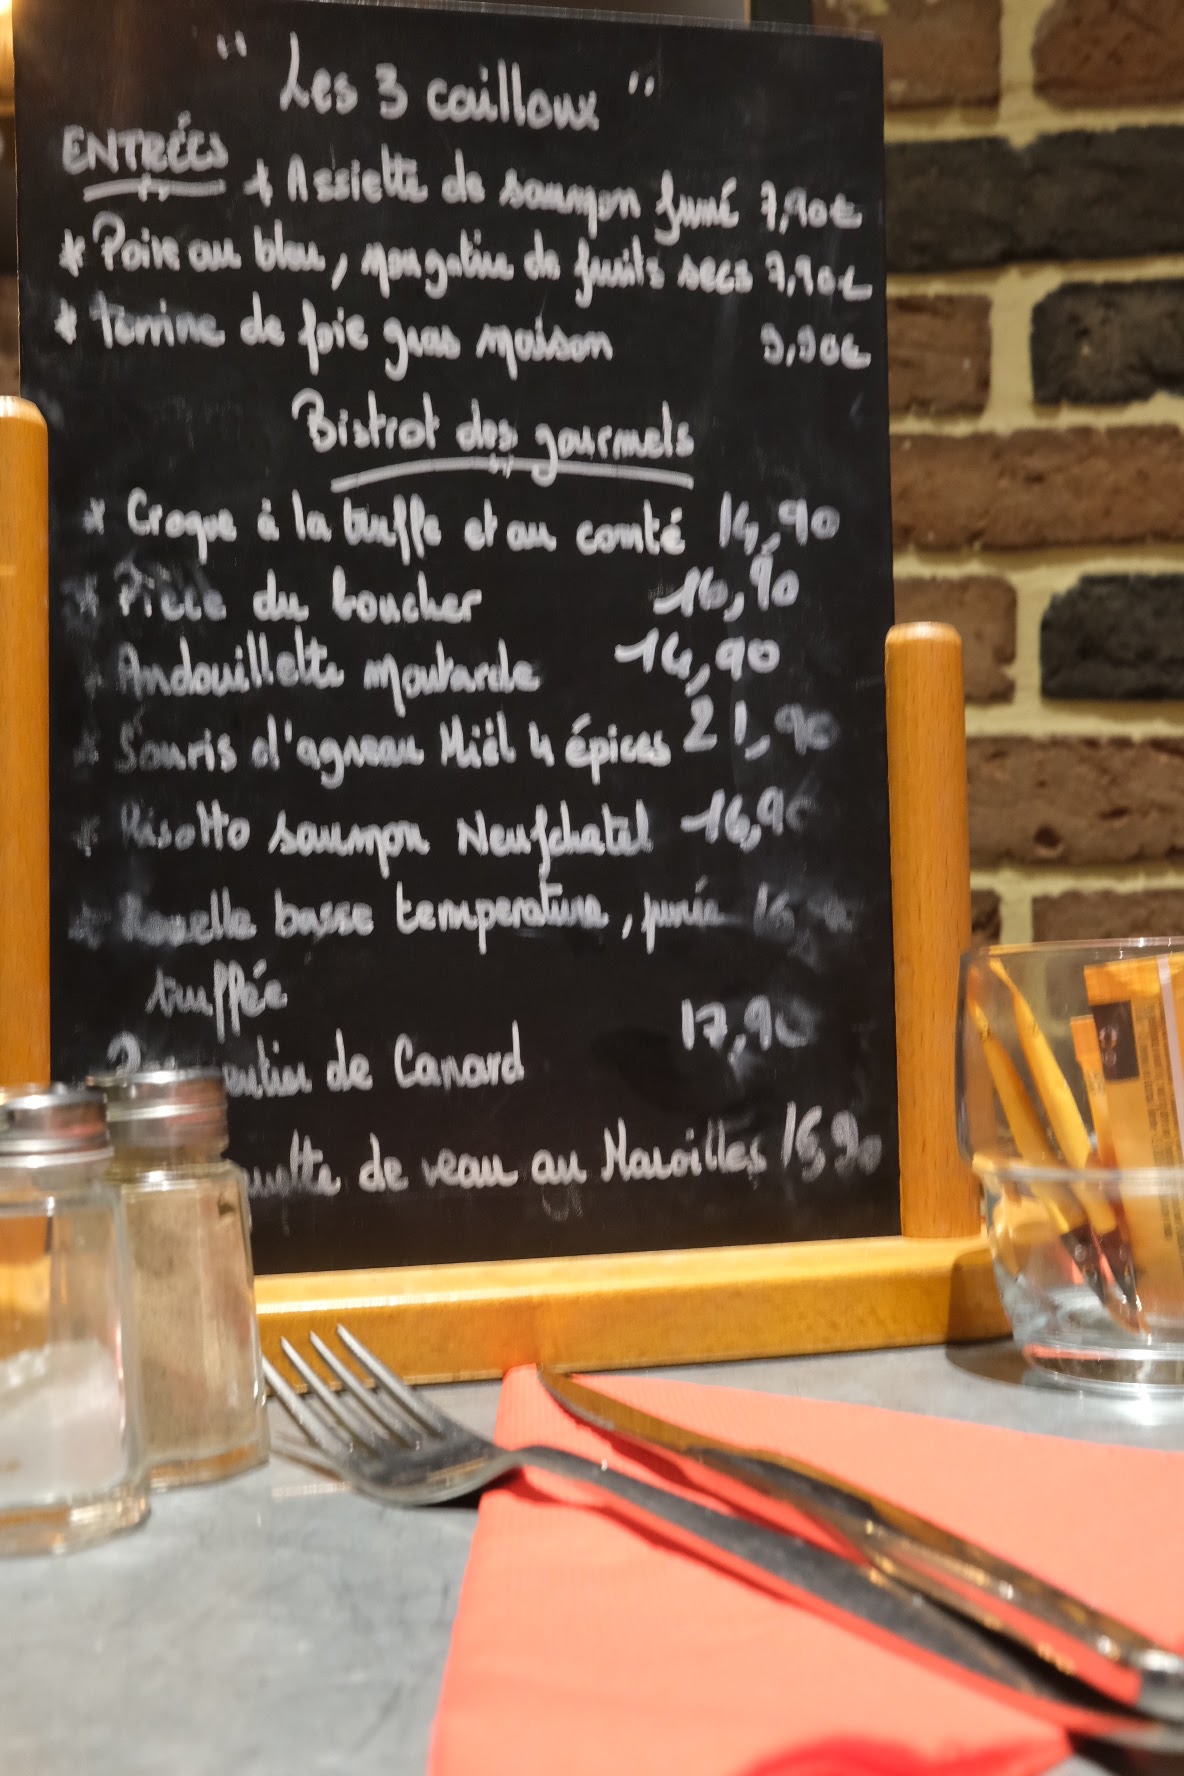 " Les 3 cailloux "
ENTRÉES * Assiette de saumon fumé 7,90€
* Poire au bleu, nougatine de fruits secs 7,90€
* Terrine de foie gras maison 9,90€
Bistrot des gourmets
* Croque à la truffe et au comté 14,90
* Pièce du boucher 16,90
* Andouillette moutarde 14,90
* Souris d'agneau Miel 4 épices 21,90
* Risotto saumon Neufchatel 16,90
* basse temperature, purée
truffée
de Canard 17,90
de veau au Maroilles 16,90